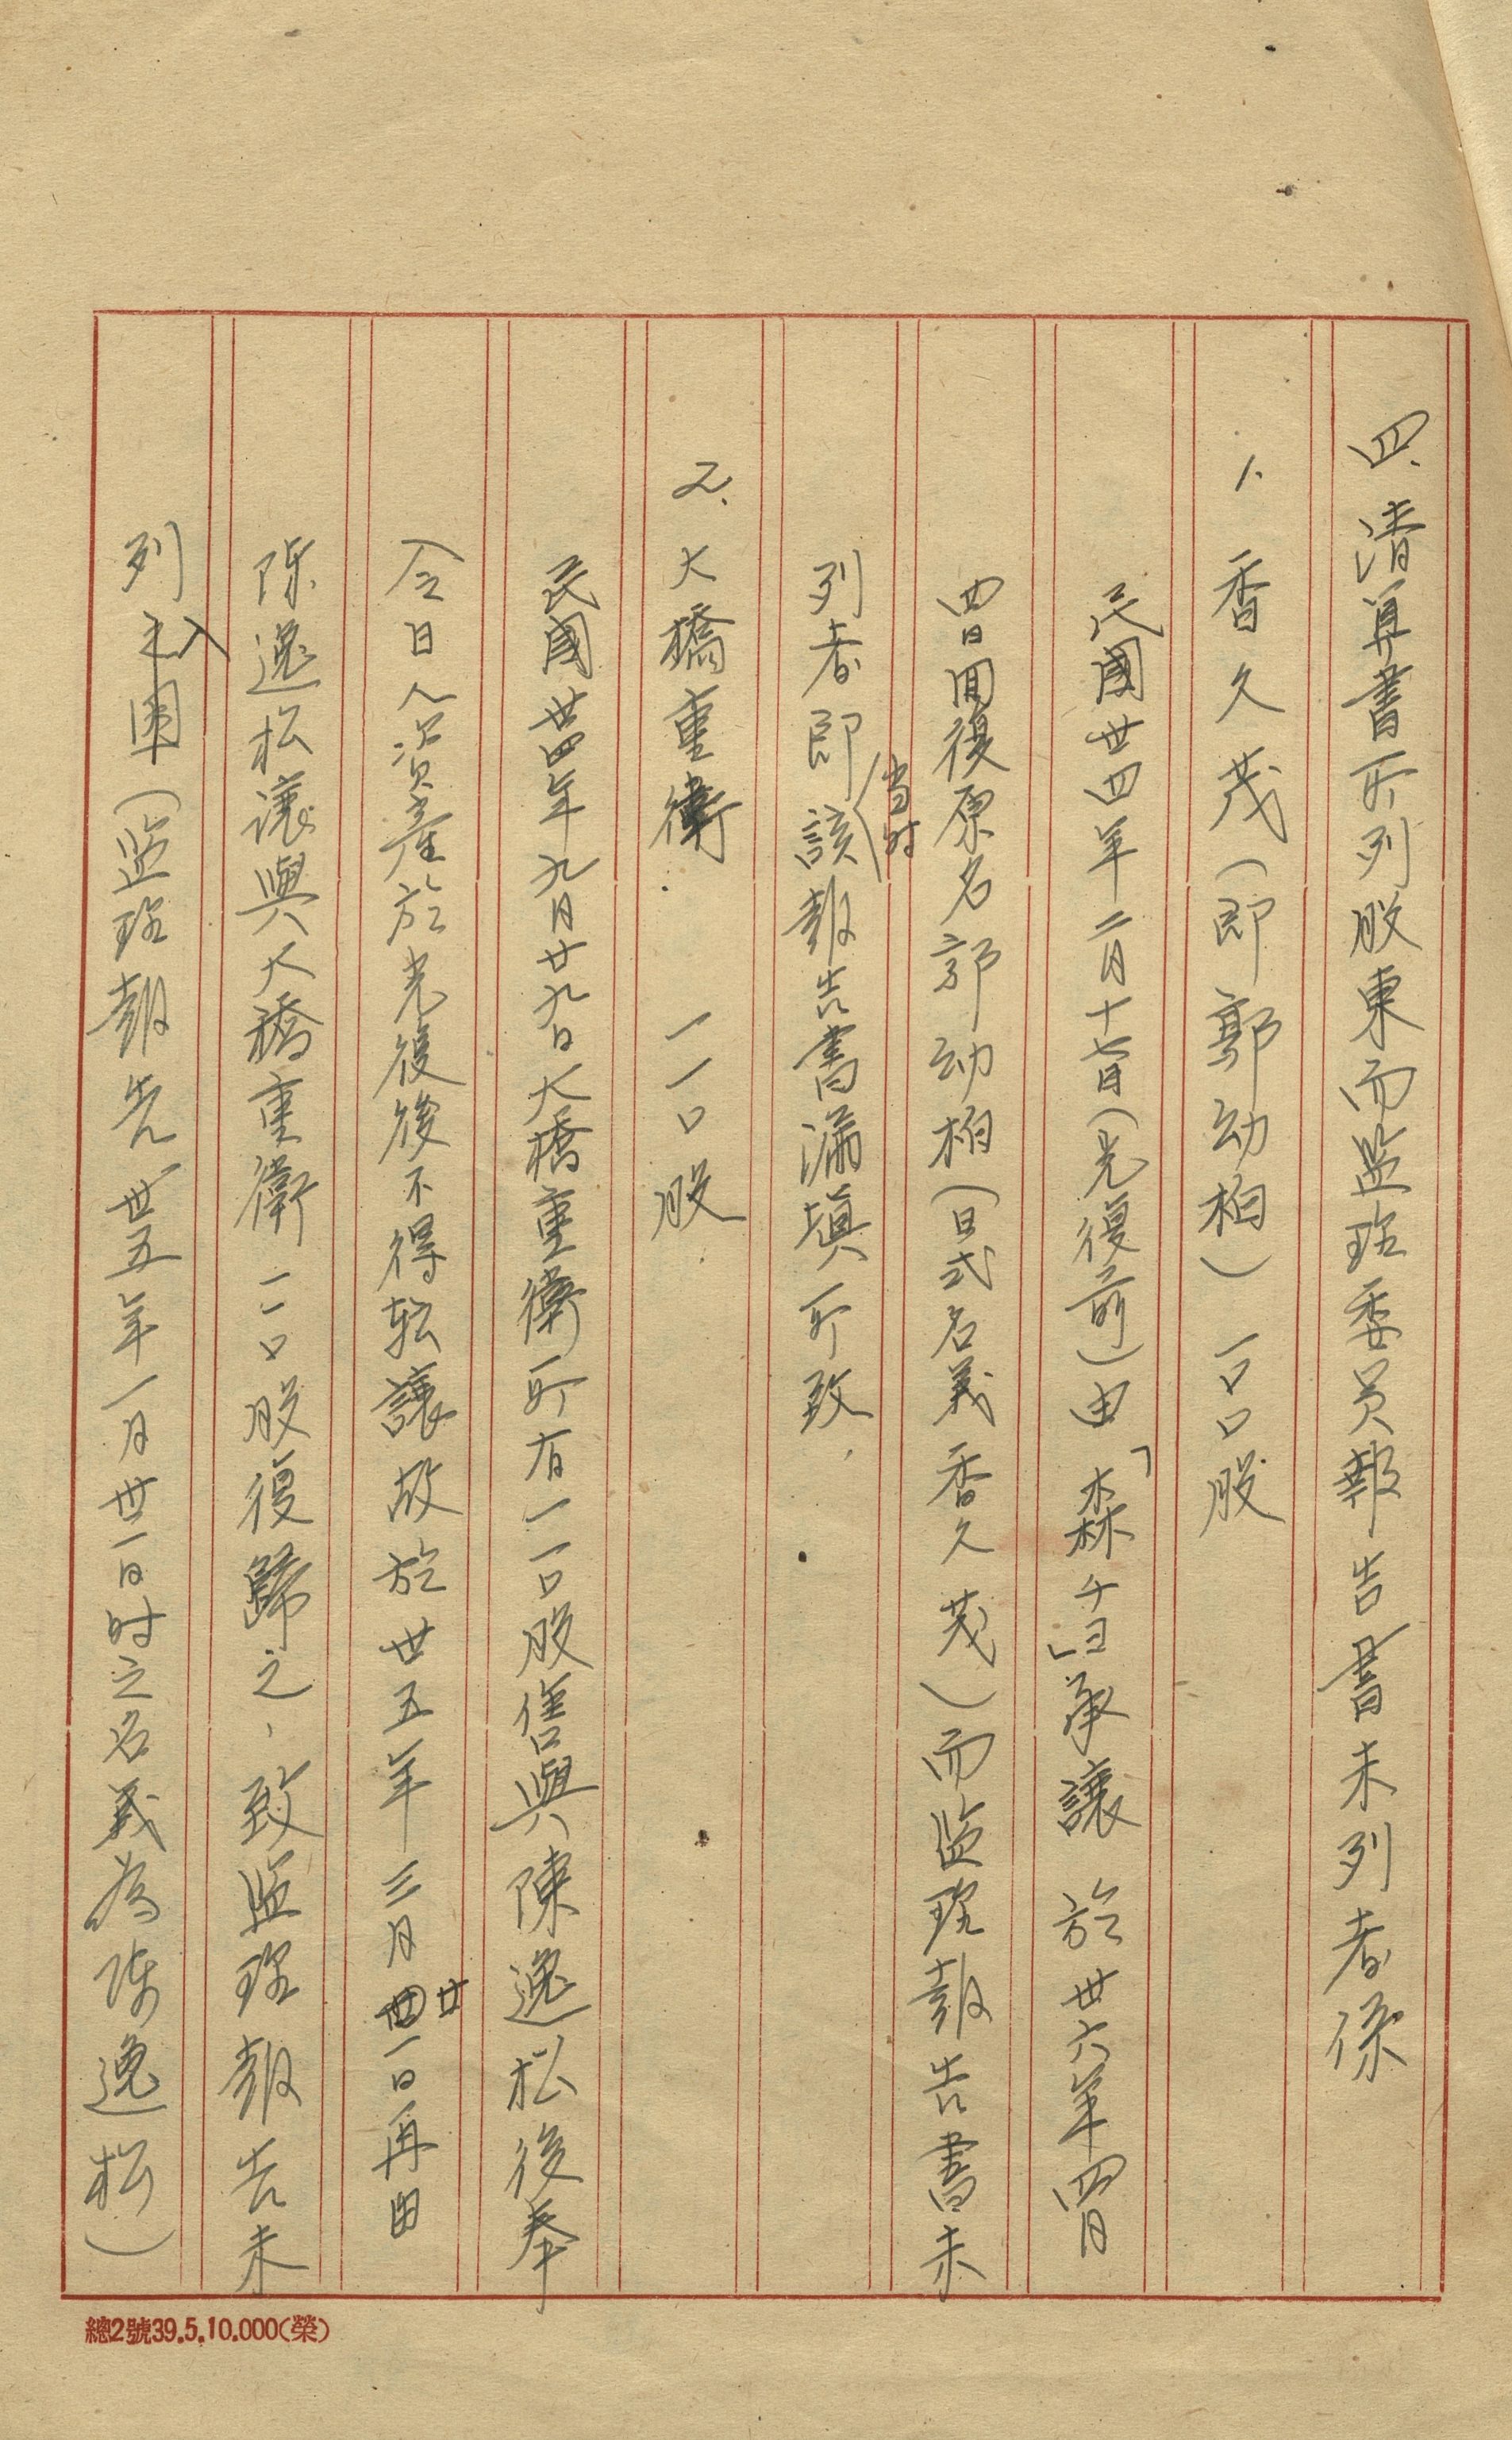 四、清算書所列股東而监理委員報告書未列者係
1. 香久茂(即郭幼柏) 一〇〇股
民國卅四年二月十七日(光復前)由「森千臼」承讓 於卅六年四月
四日回復原名郭幼柏(日式名義香久茂)而监理報告書未
列者即当时該報告書漏填所致.
2. 大橋重衛 一一〇股
民國卅四年九月廿九日大橋重衛所有一一〇股售與陳逸松後奉
令日人資產於光復後不得転讓故於卅五年三月廿一日再由
陳逸松讓與大橋重衛一一〇股復歸之,致监理報告未
列入(监理報告卅五年一月卅一日时之名義為陳逸松)
總2號39.5.10.000(榮)